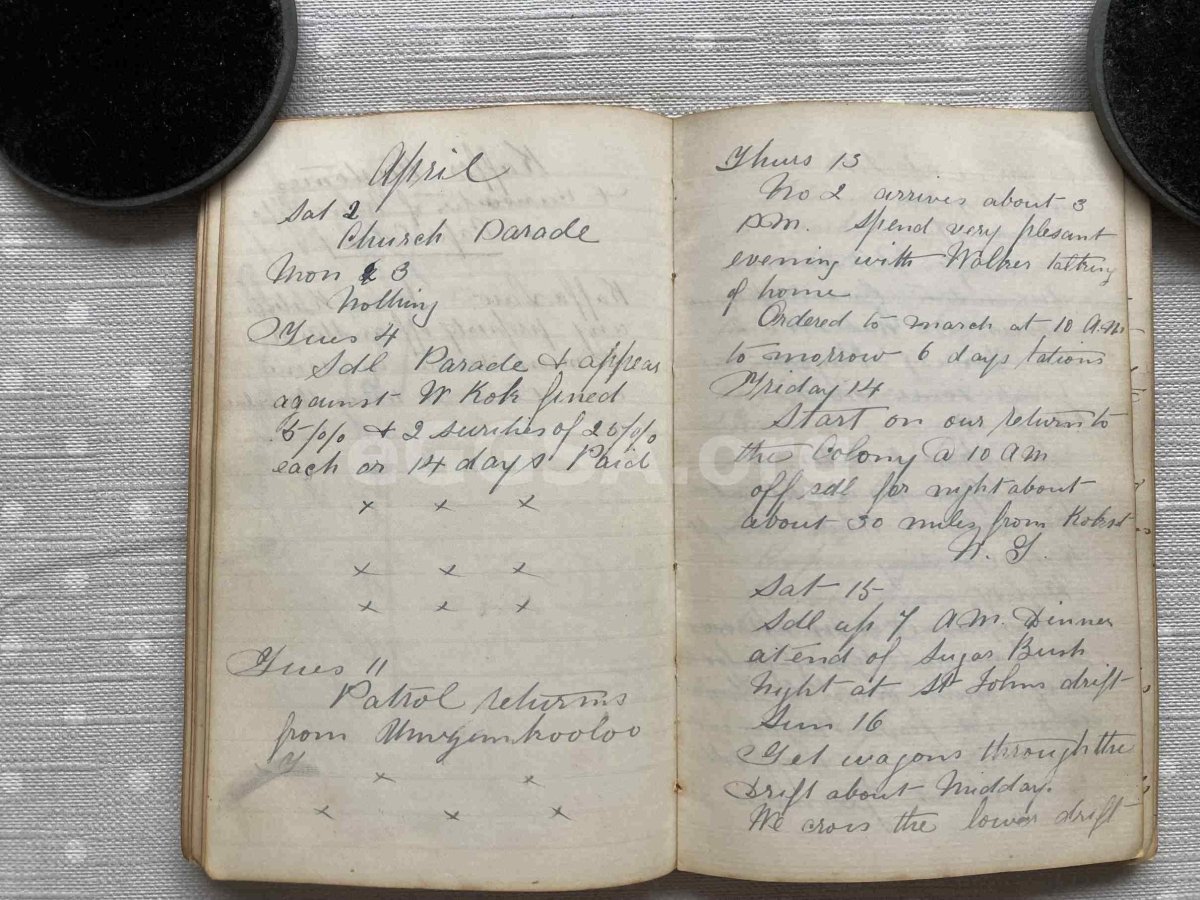 April
Sat 2
Church Parade
Mon 3
Nothing
Tues 4
Sdl Parade & appear
against W Kok fined
5/0/0 & 2 surities of 25/0/0
each or 14 days Paid
x x x
x x x
x x x
Tues 11
Patrol returns
from Umzemkooloo
x x
x x x
Thurs 13
No 2 arrives about 3
P.M. Spend very plesant
evening with Walker talking
of home
Ordered to march at 10 A.M
to morrow 6 days rations
Friday 14
Start on our return to
the Colony @ 10 AM
off sdl for night about
about 30 miles from Kokst
Sat 15
Sdl up 7 A.M. Dinner
at end of Sugar Bush
Night at St Johns drift
Sun 16
Get wagons through the
Drift about Midday.
We cross the lower drift
eGGSA.org